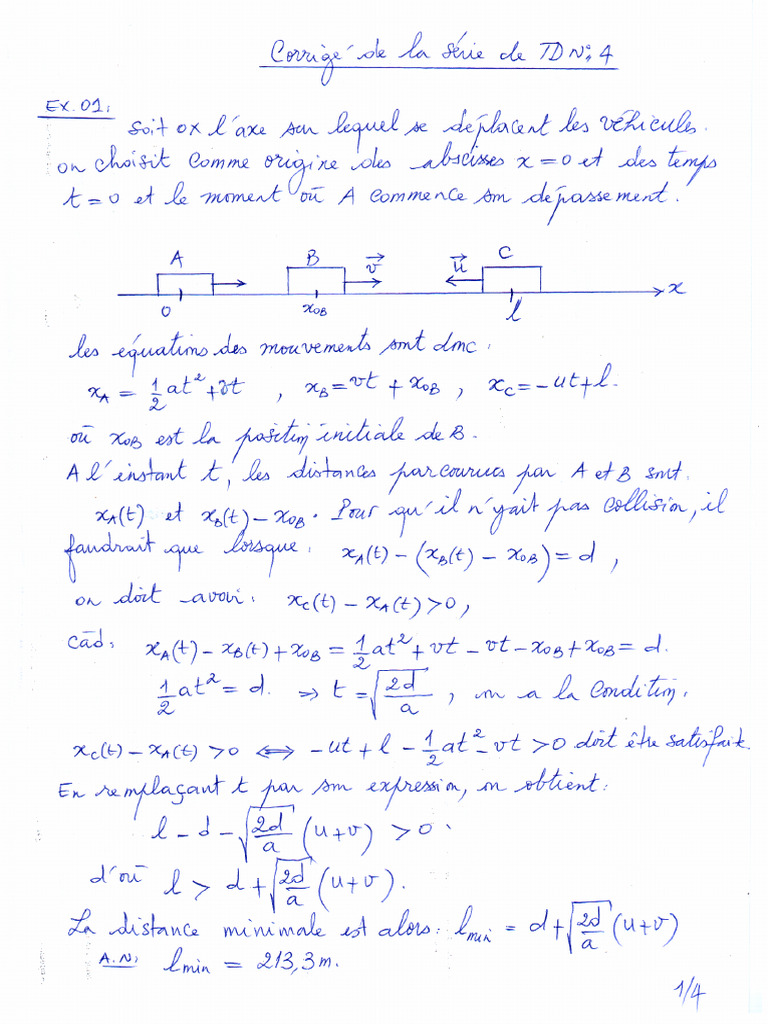 Corrigé de la série de TD N°: 4
EX. 01:
soit ox l'axe sur lequel se déplacent les véhicules.
on choisit comme origine des abscisses x = 0 et des temps
t = 0 et le moment où A commence son dépassement.
A B v⃗ u⃗ C
0 x₀B l x
les équations des mouvements sont donc:
x_A = 1/2 at² + vt , x_B = vt + x₀B , x_C = -ut + l.
où x₀B est la position initiale de B.
A l'instant t, les distances parcourues par A et B sont.
x_A(t) et x_B(t) - x₀B. Pour qu'il n'yait pas collision, il
faudrait que lorsque: x_A(t) - (x_B(t) - x₀B) = d ,
on doit avoir: x_C(t) - x_A(t) > 0,
càd: x_A(t) - x_B(t) + x₀B = 1/2 at² + vt - vt - x₀B + x₀B = d.
1/2 at² = d. ⇒ t = √(2d/a) , on a la condition.
x_C(t) - x_A(t) > 0 ⟺ -ut + l - 1/2 at² - vt > 0 doit être satisfaite.
En remplaçant t par son expression, on obtient:
l - d - √(2d/a) (u+v) > 0.
d'où l > d + √(2d/a) (u+v).
La distance minimale est alors: l_min = d + √(2d/a) (u+v)
A.N: l_min = 213,3 m.
1/4